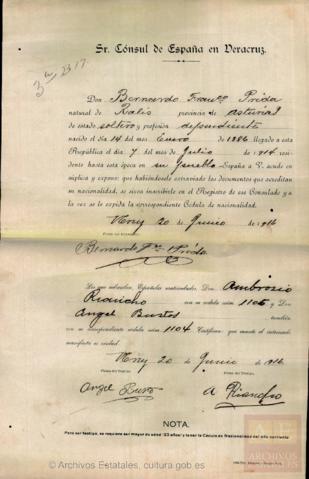 Sr. Cónsul de España en Veracruz.
Don Bernardo Franco Prida
natural de provincia de Asturias
de estado soltero y profesión dependiente
nacido el día 14 del mes Enero de 1886 llegado a esta
República el día 7 del mes de Julio de 1914 resi-
dente hasta esta época en su Pueblo -España a V. acude en
súplica y expone: que habiéndosele extraviado los documentos que acreditan
su nacionalidad, se sirva inscribirle en el Registro de ese Consulado y a
la vez se le expida la correspondiente Cédula de nacionalidad.
Very 20 de Junio de 1916
Bernardo Fco Prida
Los que subscriben, Españoles matriculados: Don Ambrosio
Riancho con su cédula núm. 1105 y Don
Angel Bustos también
con su correspondiente cédula núm. 1104 Certifican: que cuanto el interesado
manifiesta es verdad.
Very 20 de Junio de 1916
Firma del Testigo. Firma del Testigo.
Angel Busto A Riancho
NOTA.
Para ser testigo, se requiere ser mayor de edad (23 años) y tener la Cédula de Nacionalidad del año corriente
© Archivos Estatales, cultura.gob.es